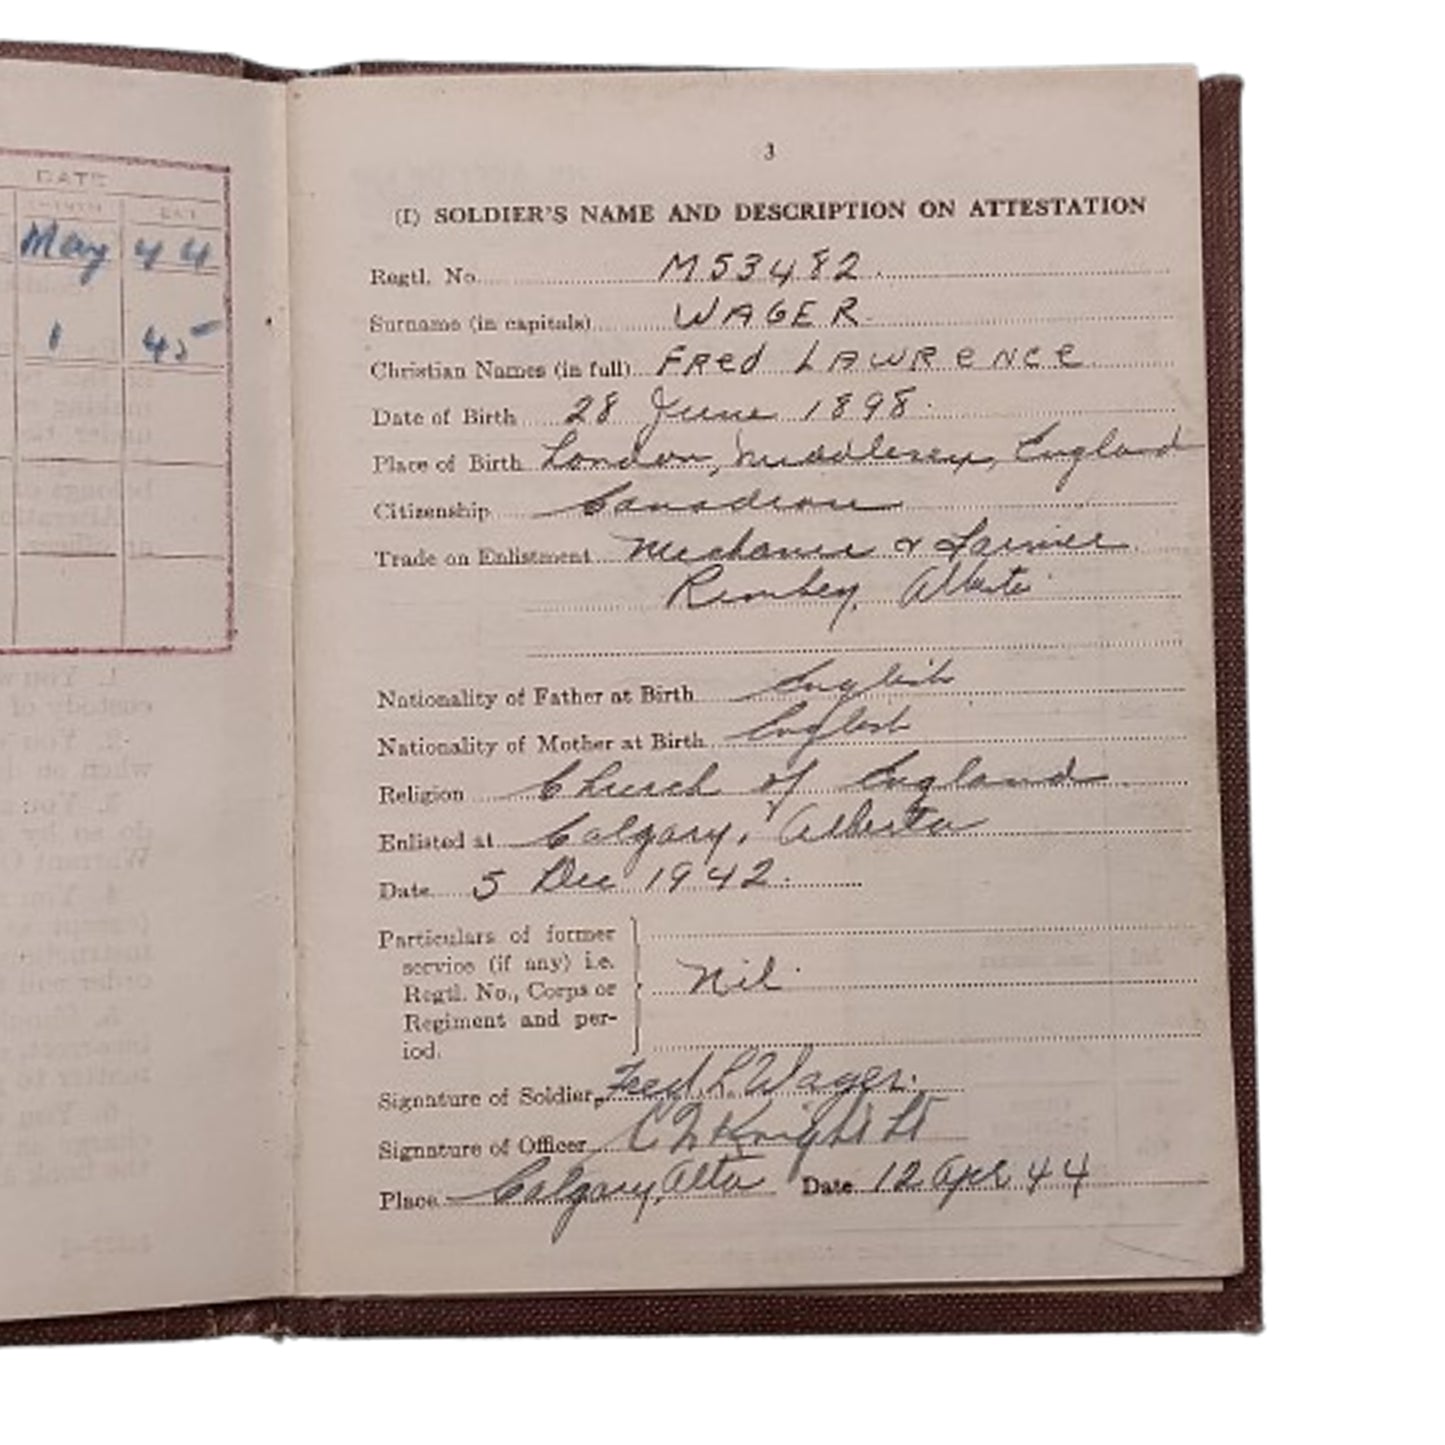 DATE
MONTH
May 44
1 45
3
(I) SOLDIER'S NAME AND DESCRIPTION ON ATTESTATION
Regtl. No. M53482
Surname (in capitals) WAGER
Christian Names (in full) FRed LAWReNCe
Date of Birth 28 June 1898
Place of Birth London, Middlesex, England
Citizenship Canadian
Trade on Enlistment Mechanic & Farmer
Rimbey, Alberta
Nationality of Father at Birth English
Nationality of Mother at Birth English
Religion Church of England
Enlisted at Calgary, Alberta
Date 5 Dec 1942
Particulars of former
service (if any) i.e.
Regtl. No., Corps or Nil
Regiment and per-
iod.
Signature of Soldier Fred L Wager.
Signature of Officer Knight Lt
Place Calgary, Alta Date 12 Apr 44